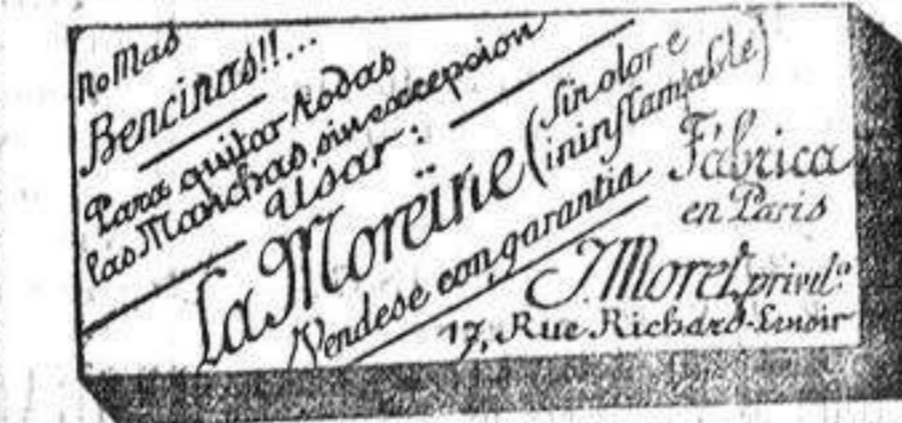 No Mas
Bencinas!!...
Para quitar todas
las Manchas, sin excepcion
Usar:
La Moreïne (Sin olor e
ininflamable)
Vendese con garantia
Fábrica
en Paris
J. Moret, privil.º
17, Rue Richard-Lenoir